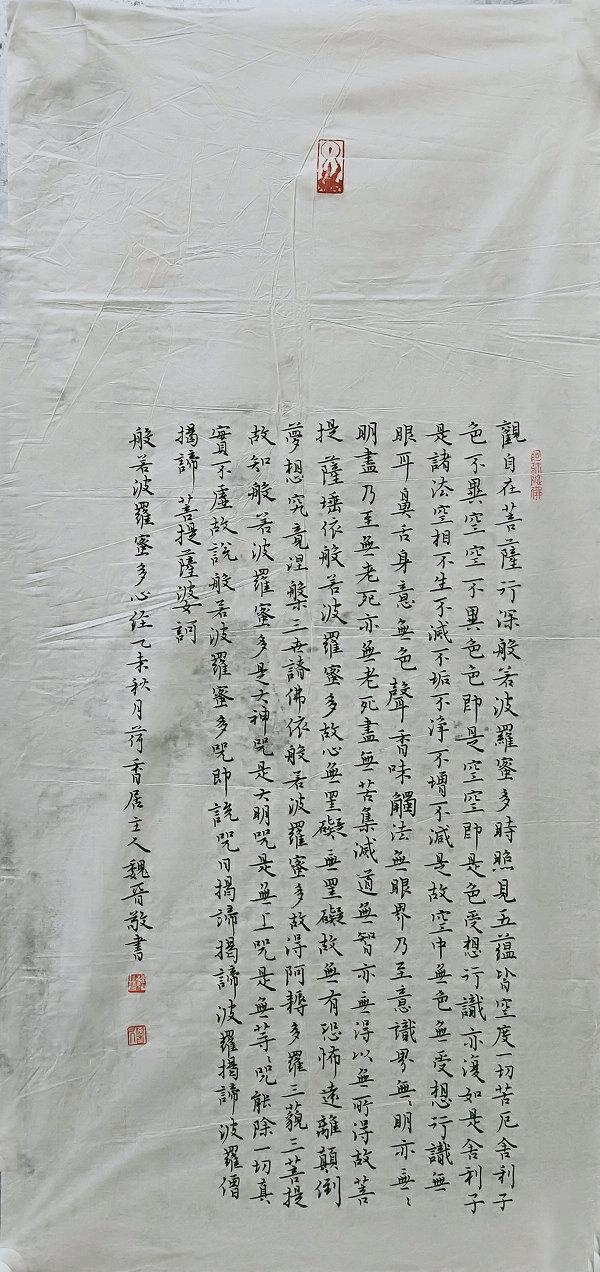 觀自在菩薩行深般若波羅蜜多時照見五蘊皆空度一切苦厄舍利子
色不異空空不異色色即是空空即是色受想行識亦復如是舍利子
是諸法空相不生不滅不垢不淨不增不減是故空中無色無受想行識無
眼耳鼻舌身意無色聲香味觸法無眼界乃至意識界無〻明亦無〻
明盡乃至無老死亦無老死盡無苦集滅道無智亦無得以無所得故菩
提薩埵依般若波羅蜜多故心無罣礙無罣礙故無有恐怖遠離顛倒
夢想究竟涅槃三世諸佛依般若波羅蜜多故得阿耨多羅三藐三菩提
故知般若波羅蜜多是大神咒是大明咒是無上咒是無等〻咒能除一切真
實不虛故說般若波羅蜜多咒即說咒曰揭諦揭諦波羅揭諦波羅僧
揭諦菩提薩婆訶
般若波羅蜜多心經乙未秋月荷香居主人魏晉敬書
阿彌陀佛